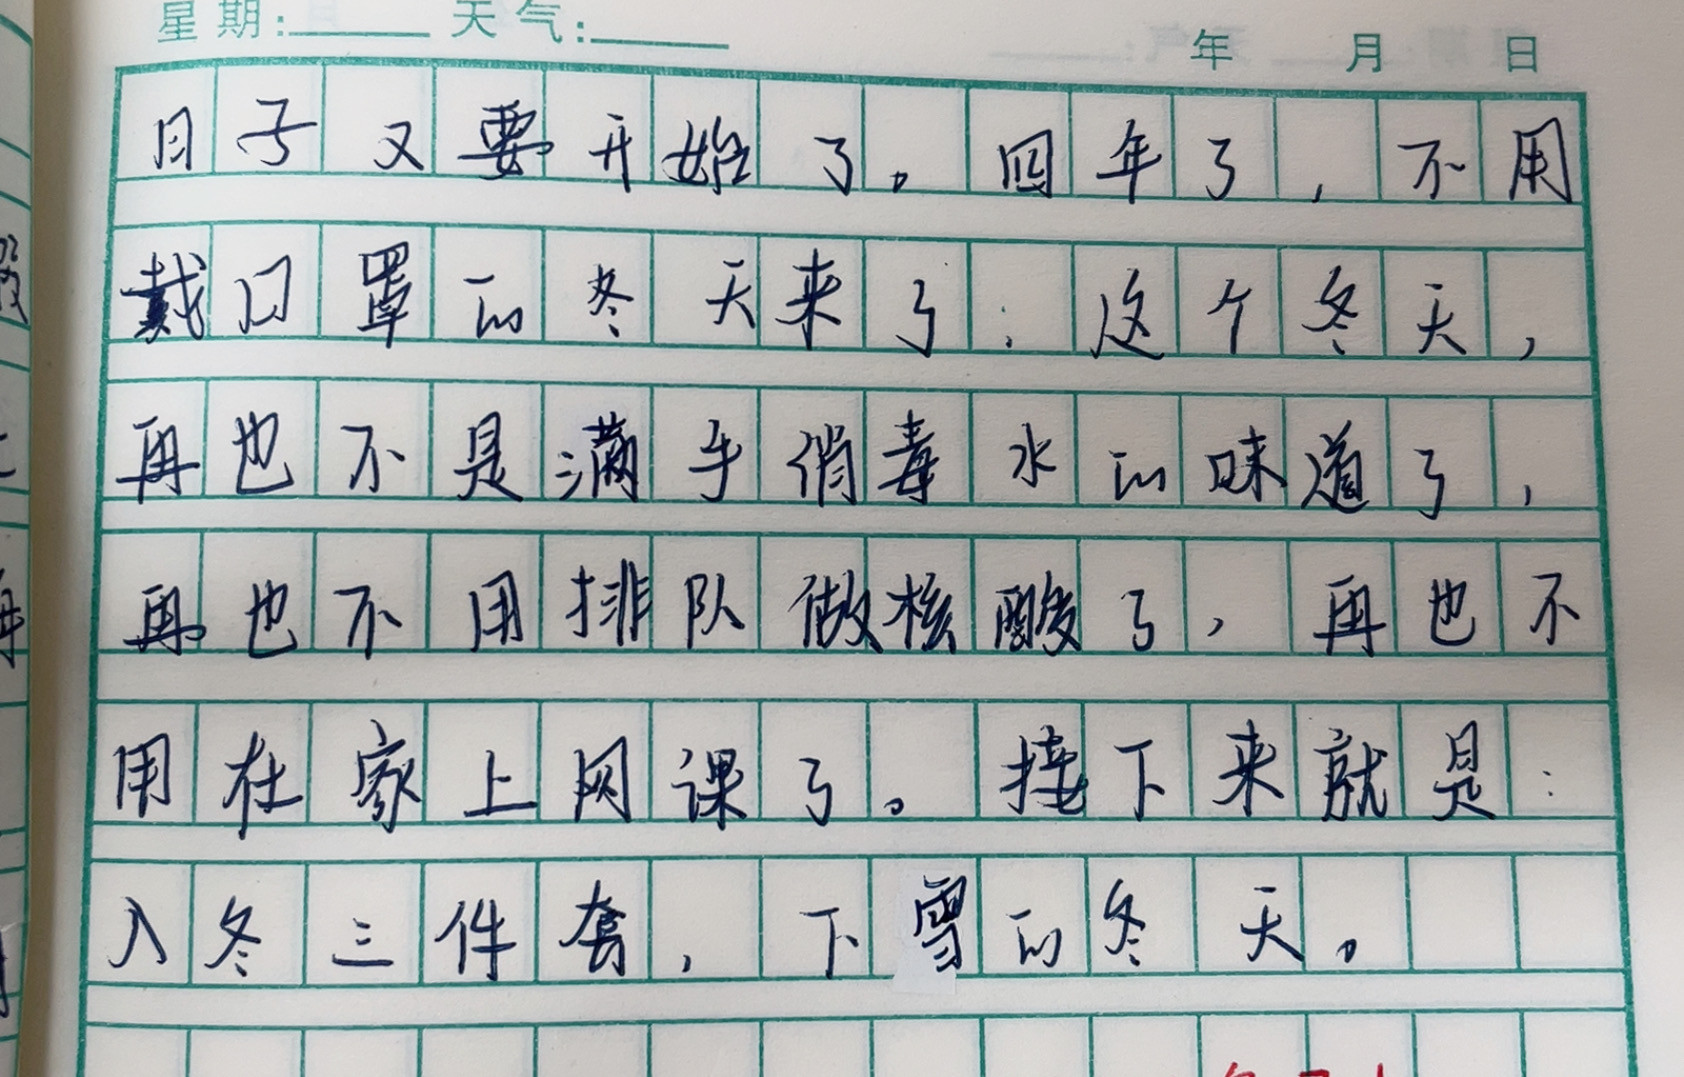 星期: 天气: 年 月 日
日子又要开始了。四年了,不用
戴口罩的冬天来了:这个冬天,
再也不是满手消毒水的味道了,
再也不用排队做核酸了,再也不
用在家上网课了。接下来就是:
入冬三件套,下雪的冬天。